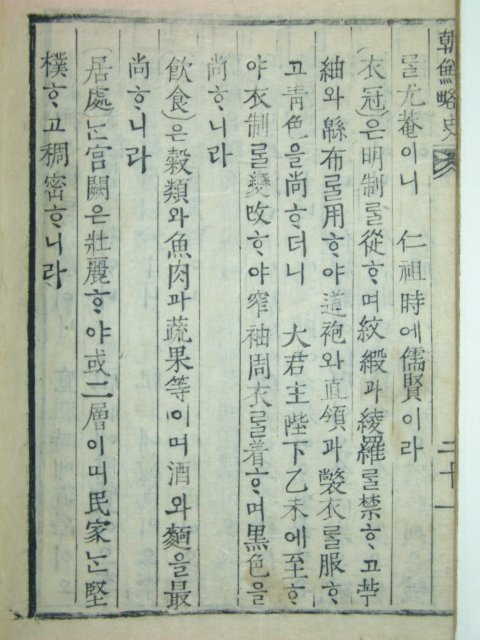 朝鮮略史
二十一
를尤菴이니 仁祖時에儒賢이라
(衣冠)은明制를從ᄒᆞ며紋緞과綾羅를禁ᄒᆞ고苧
紬와緜布를用ᄒᆞ야道袍와直領과氅衣를服ᄒᆞ
고靑色을尙ᄒᆞ더니 大君主陛下乙未에至ᄒᆞ
야衣制를變改ᄒᆞ야窄袖周衣를着ᄒᆞ며黑色을
尙ᄒᆞ니라
(飮食)은穀類와魚肉과蔬果等이며酒와麵을最
尙ᄒᆞ니라
(居處)ᄂᆞᆫ宮闕은壯麗ᄒᆞ야或二層이며民家ᄂᆞᆫ堅
樸ᄒᆞ고稠密ᄒᆞ니라